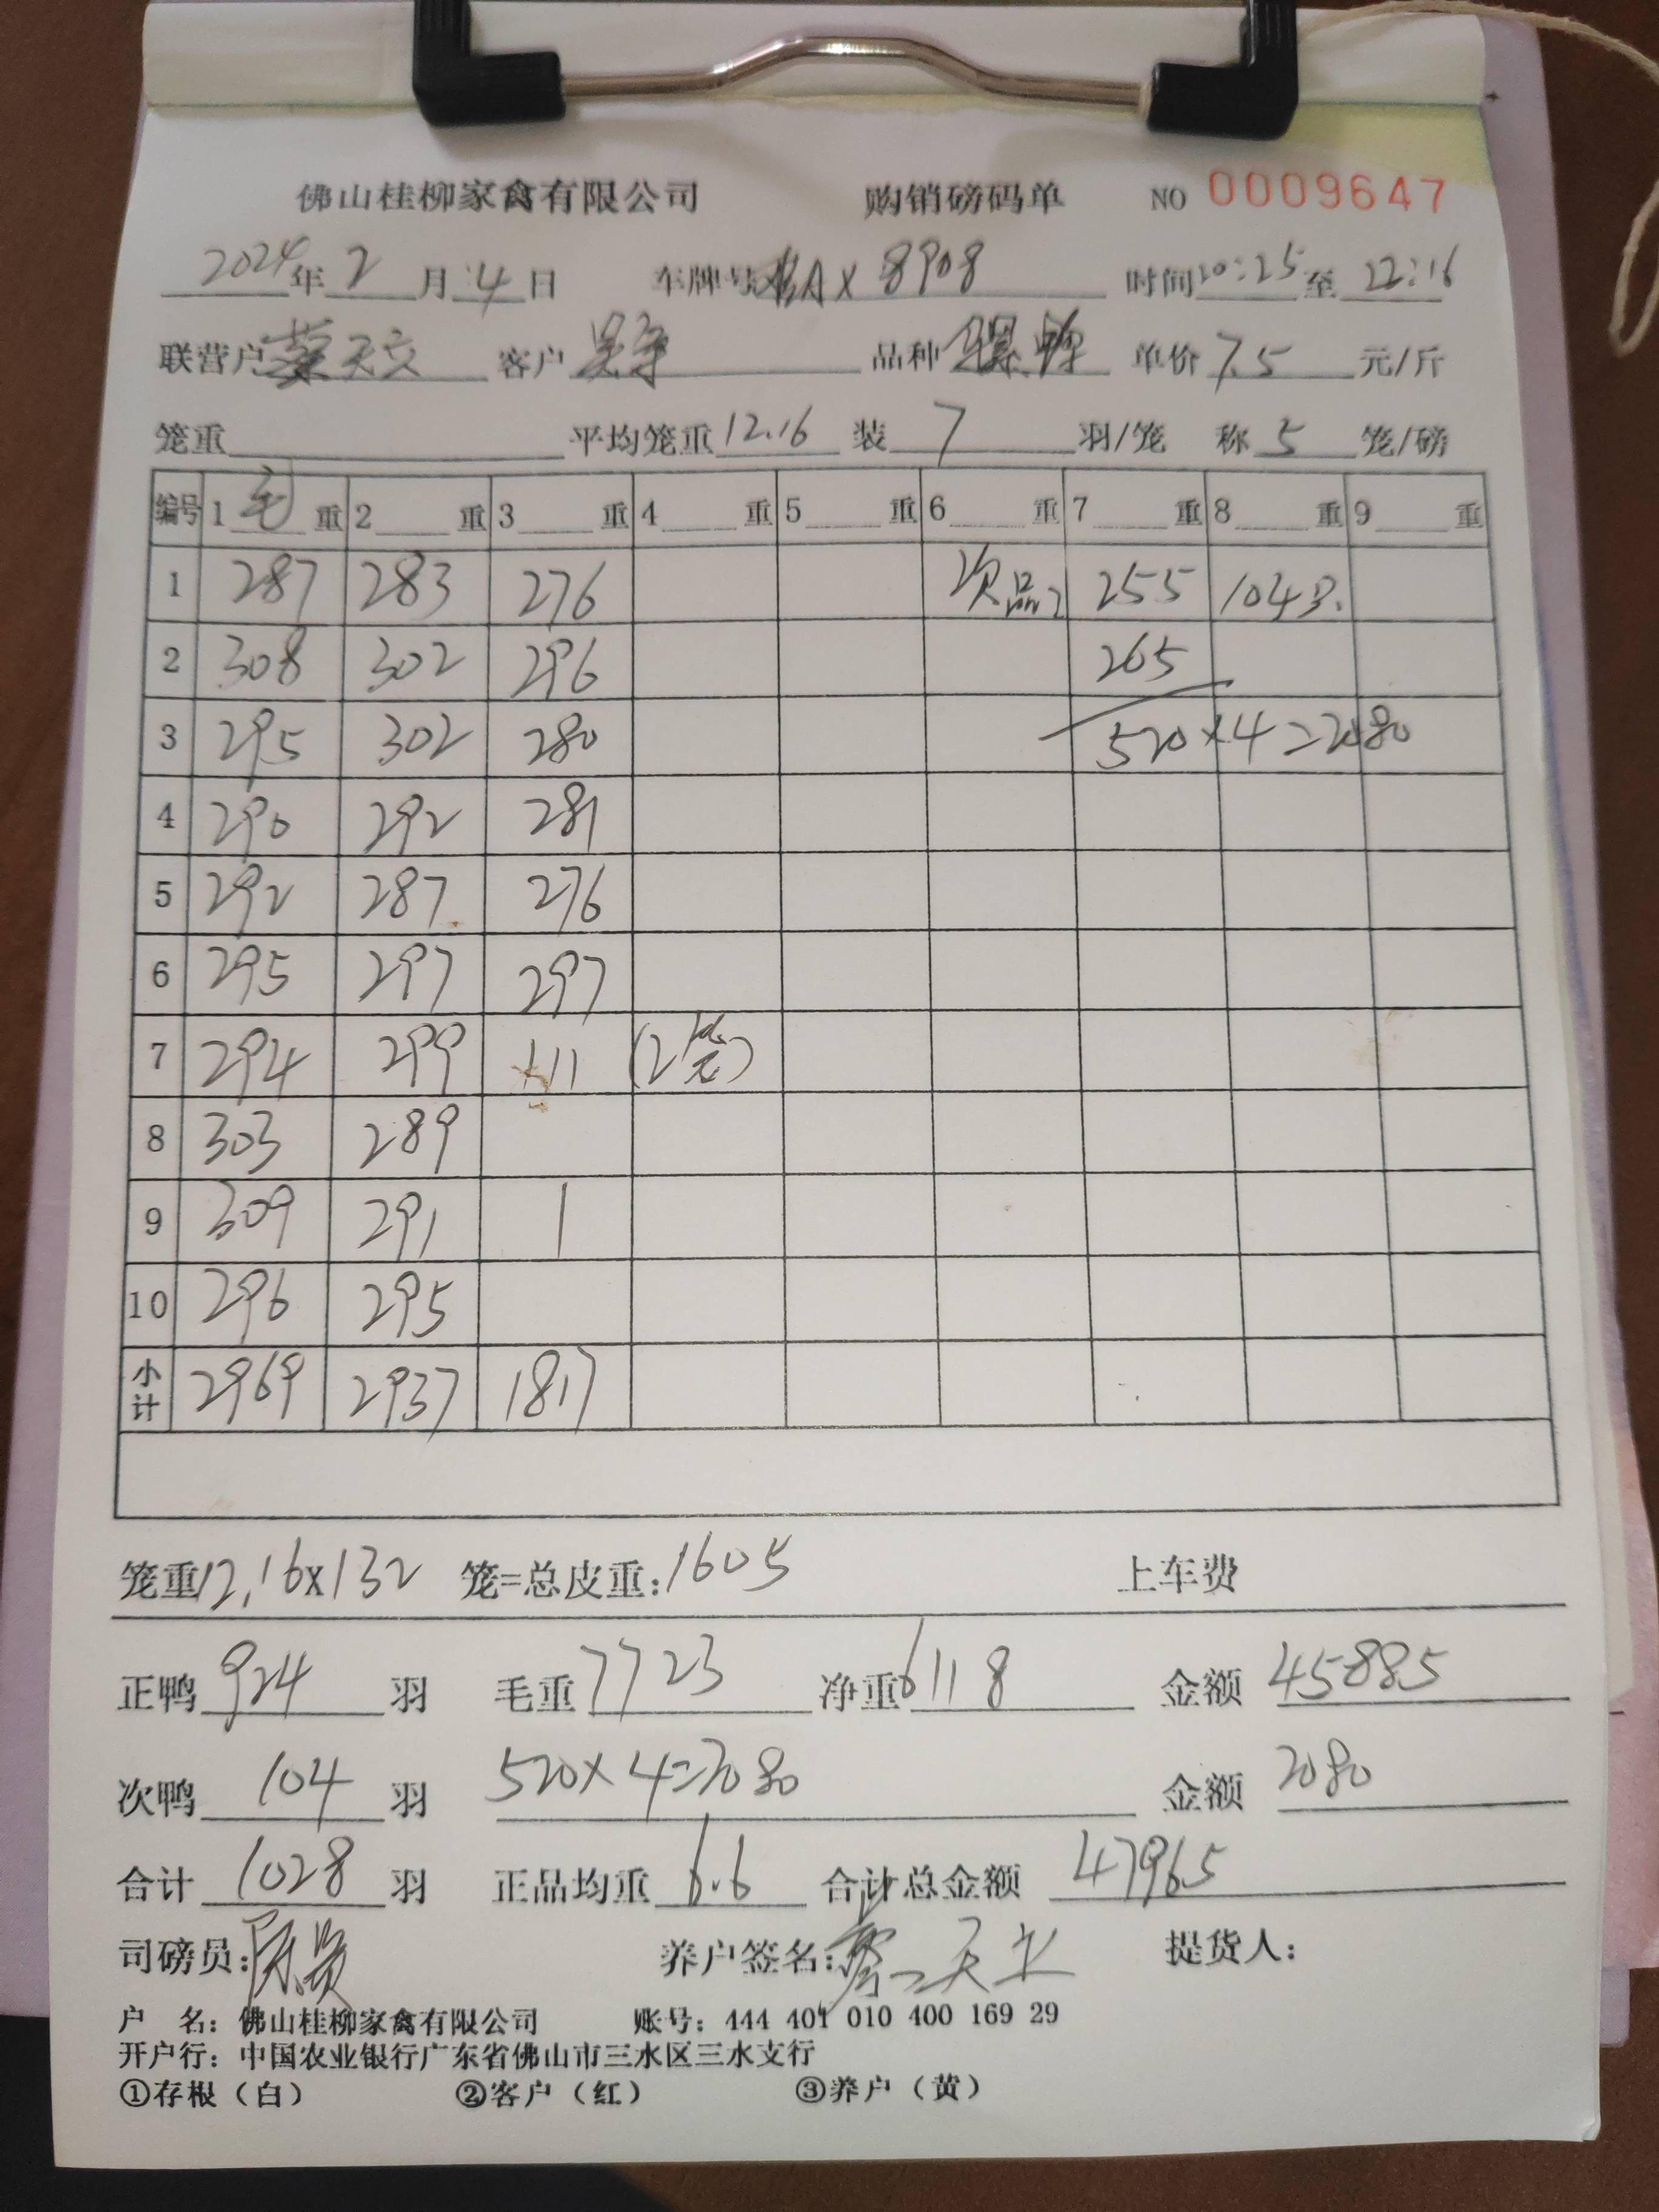 佛山桂柳家禽有限公司 购销磅码单 NO 0009647
2024年2月4日 车牌号 AX8908 时间20:25至22:16
联营户 天文 客户 品种 单价7.5元/斤
笼重 平均笼重12.16 装7羽/笼 称5笼/磅
编号 1毛重 2重 3重 4重 5重 6重 7重 8重 9重
1 287 283 276 次品2 255 104只
2 308 302 296 265
3 295 302 280 520×4=2080
4 290 292 281
5 292 287 276
6 295 297 297
7 294 299 111 (2笼)
8 303 289
9 309 291 1
10 296 295
小计 2969 2937 1817
笼重12.16×132 笼=总皮重:1605 上车费
正鸭924羽 毛重7723 净重6118 金额45885
次鸭104羽 520×4=2080 金额2080
合计1028羽 正品均重6.6 合计总金额47965
司磅员: 养户签名: 天文 提货人:
户 名:佛山桂柳家禽有限公司 账号:444 401 010 400 169 29
开户行:中国农业银行广东省佛山市三水区三水支行
①存根(白) ②客户(红) ③养户(黄)